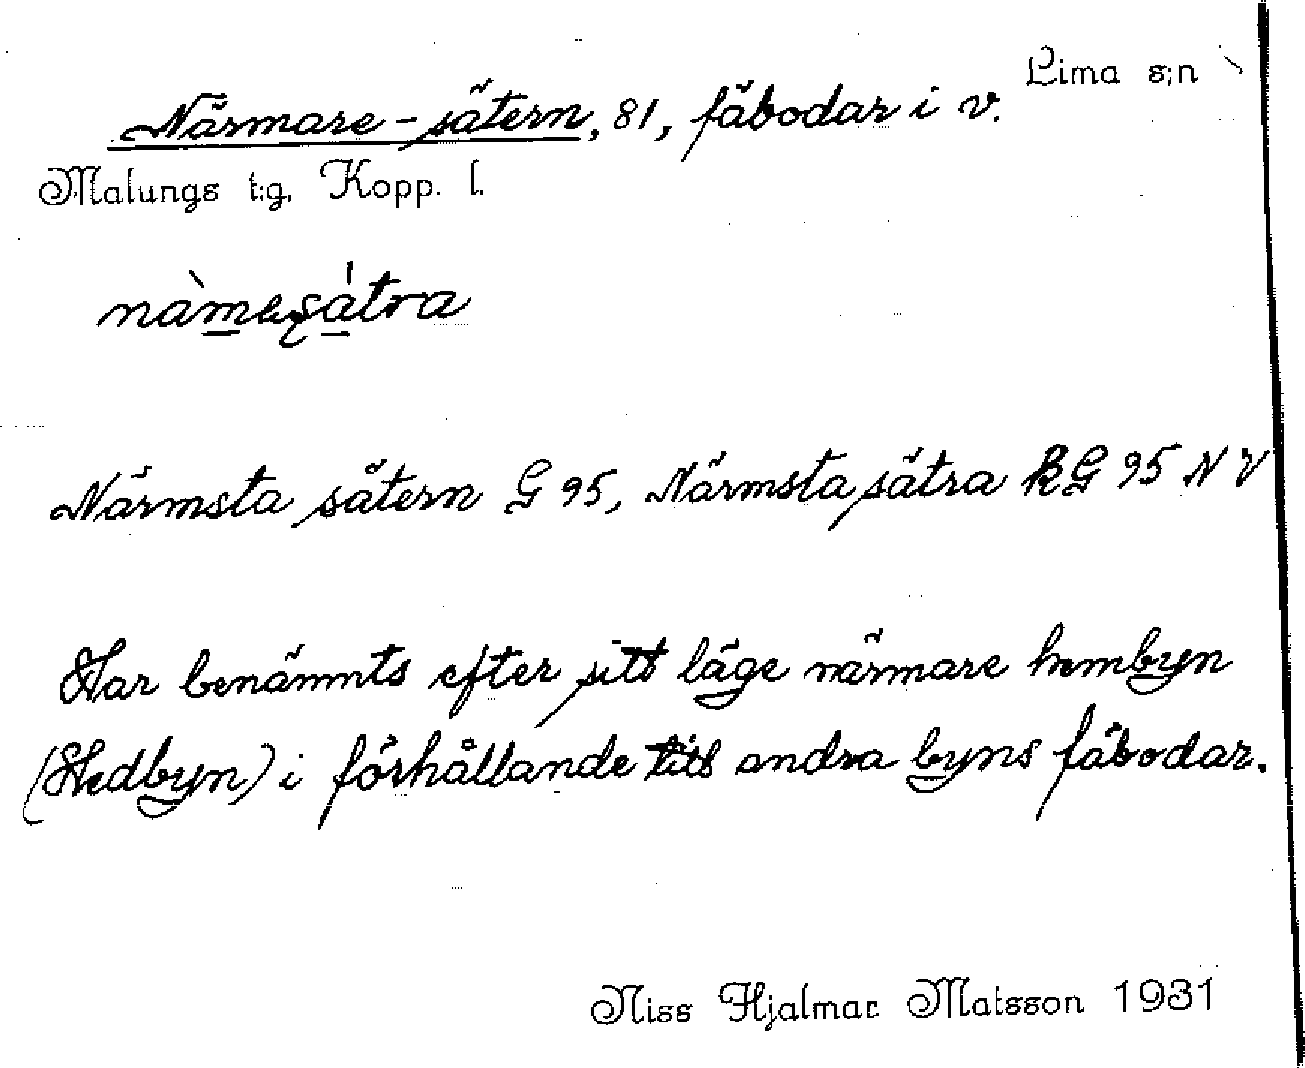 Lima s;n
Närmare-sätern, 81, fäbodar i v.
Malungs t:g, Kopp. l.
Närmsta sätern G 95, Närmsta sätra kG 95 N V
Har benämnts efter sitt läge närmare hembyn
(Hedbyn) i förhållande till andra byns fäbodar.
Niss Hjalmar Matsson 1931